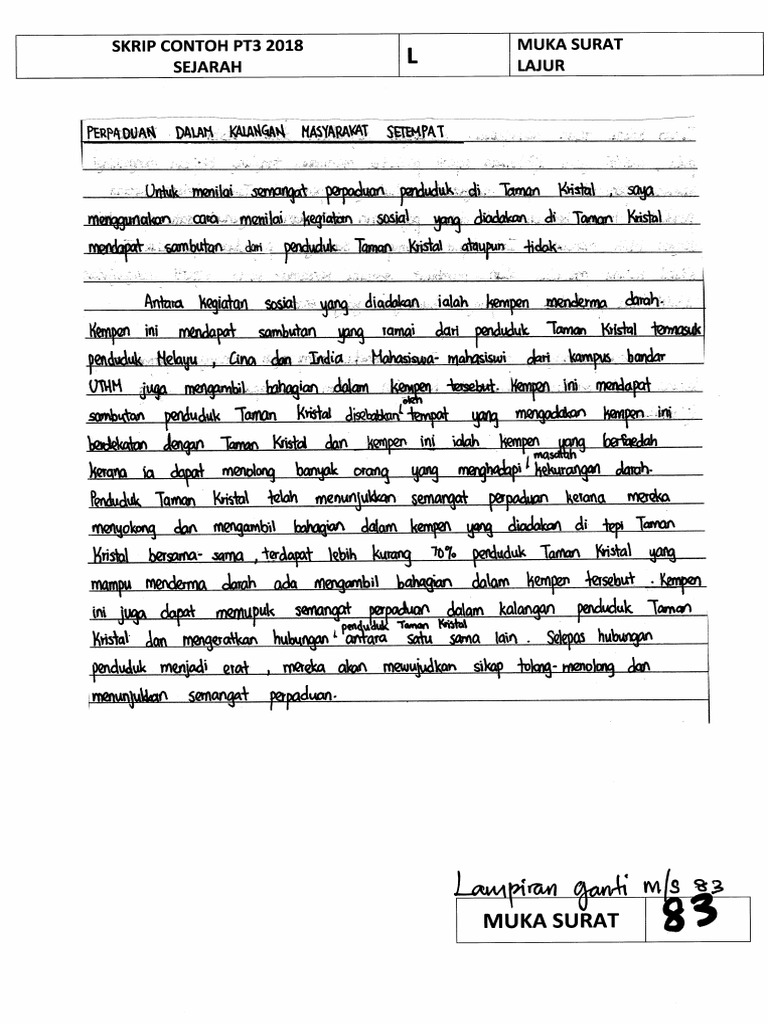 SKRIP CONTOH PT3 2018
SEJARAH
L
MUKA SURAT
LAJUR
PERPADUAN DALAM KALANGAN MASYARAKAT SETEMPAT
Untuk menilai semangat perpaduan penduduk di Taman Kristal, saya
menggunakan cara menilai kegiatan sosial yang diadakan di Taman Kristal
mendapat sambutan dari penduduk Taman Kristal ataupun tidak.
Antara kegiatan sosial yang diadakan ialah kempen menderma darah.
Kempen ini mendapat sambutan yang ramai dari penduduk Taman Kristal termasuk
penduduk Melayu, Cina dan India. Mahasiswa-mahasiswi dari kampus bandar
UTHM juga mengambil bahagian dalam kempen tersebut. Kempen ini mendapat
sambutan penduduk Taman Kristal disebabkan oleh tempat yang mengadakan kempen ini
berdekatan dengan Taman Kristal dan kempen ini ialah kempen yang berfaedah
kerana ia dapat menolong banyak orang yang menghadapi masalah kekurangan darah.
Penduduk Taman Kristal telah menunjukkan semangat perpaduan kerana mereka
menyokong dan mengambil bahagian dalam kempen yang diadakan di tepi Taman
Kristal bersama-sama, terdapat lebih kurang 70% penduduk Taman Kristal yang
mampu menderma darah ada mengambil bahagian dalam kempen tersebut. Kempen
ini juga dapat memupuk semangat perpaduan dalam kalangan penduduk Taman
Kristal dan mengeratkan hubungan penduduk Taman Kristal antara satu sama lain. Selepas hubungan
penduduk menjadi erat, mereka akan mewujudkan sikap tolong-menolong dan
menunjukkan semangat perpaduan.
Lampiran ganti m/s 83
MUKA SURAT
83